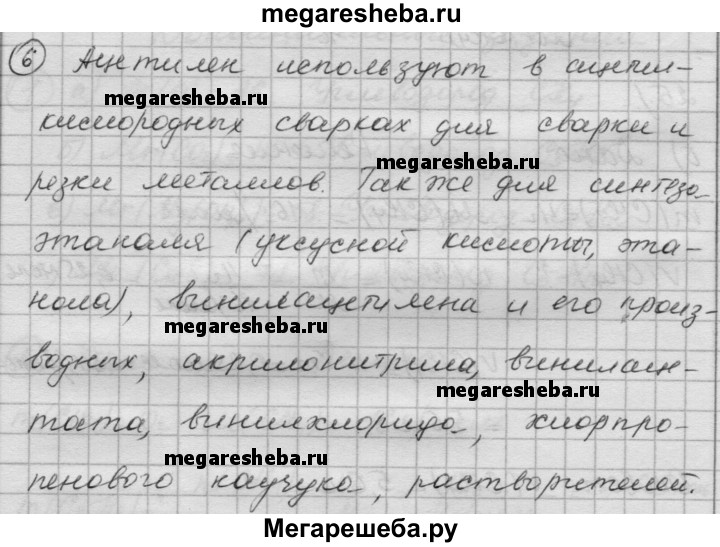 megaresheba.ru
6 Ацетилен используют в ацетил-
megaresheba.ru
кислородных сварках для сварки и
megaresheba.ru
резки металлов. Так же для синтеза
этаналя (уксусной кислоты, эта-
нола), винилацетилена и его произ-
megaresheba.ru
водных, акрилонитрила, винилаце-
megaresheba.ru
тата, винилхлорида, хлорпро-
megaresheba.ru
пенового каучука, растворителей.
Мегарешеба.ру